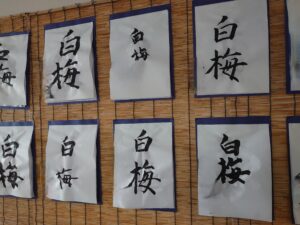 白梅
白梅
白梅
白梅
白梅
白梅
白梅
白梅
白梅
白梅